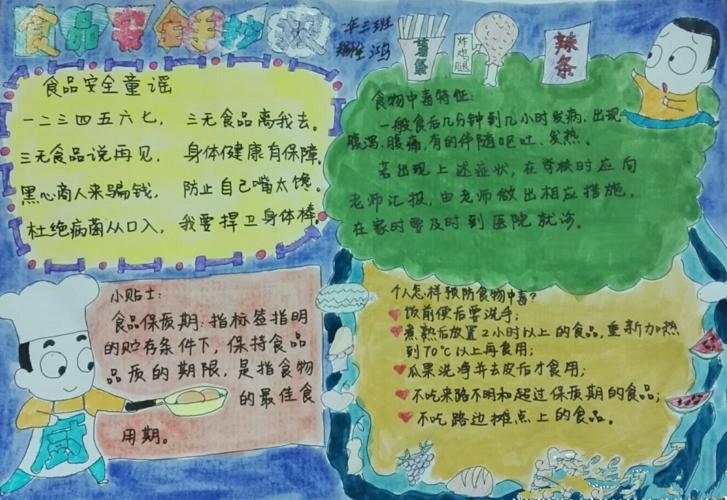 食品安全手抄报
年三班
薯条
炸鸡腿
辣条
食品安全童谣
一二三四五六七， 三无食品离我去。
三无食品说再见， 身体健康有保障。
黑心商人来骗钱， 防止自己嘴太馋。
杜绝病菌从口入， 我要捍卫身体棒。
食物中毒特征：
一般食后几分钟到几小时发病，出现
腹泻、腹痛，有的伴随呕吐、发热。
若出现上述症状，在学校时应向
老师汇报，由老师做出相应措施，
在家时要及时到医院就诊。
小贴士：
食品保质期：指标签指明
的贮存条件下，保持食品
品质的期限，是指食物
的最佳食
用期。
厨
个人怎样预防食物中毒？
饭前便后要洗手；
煮熟后放置2小时以上的食品，重新加热
到70℃以上再食用；
瓜果洗净并去皮后才食用；
不吃来路不明和超过保质期的食品；
不吃路边摊点上的食品。